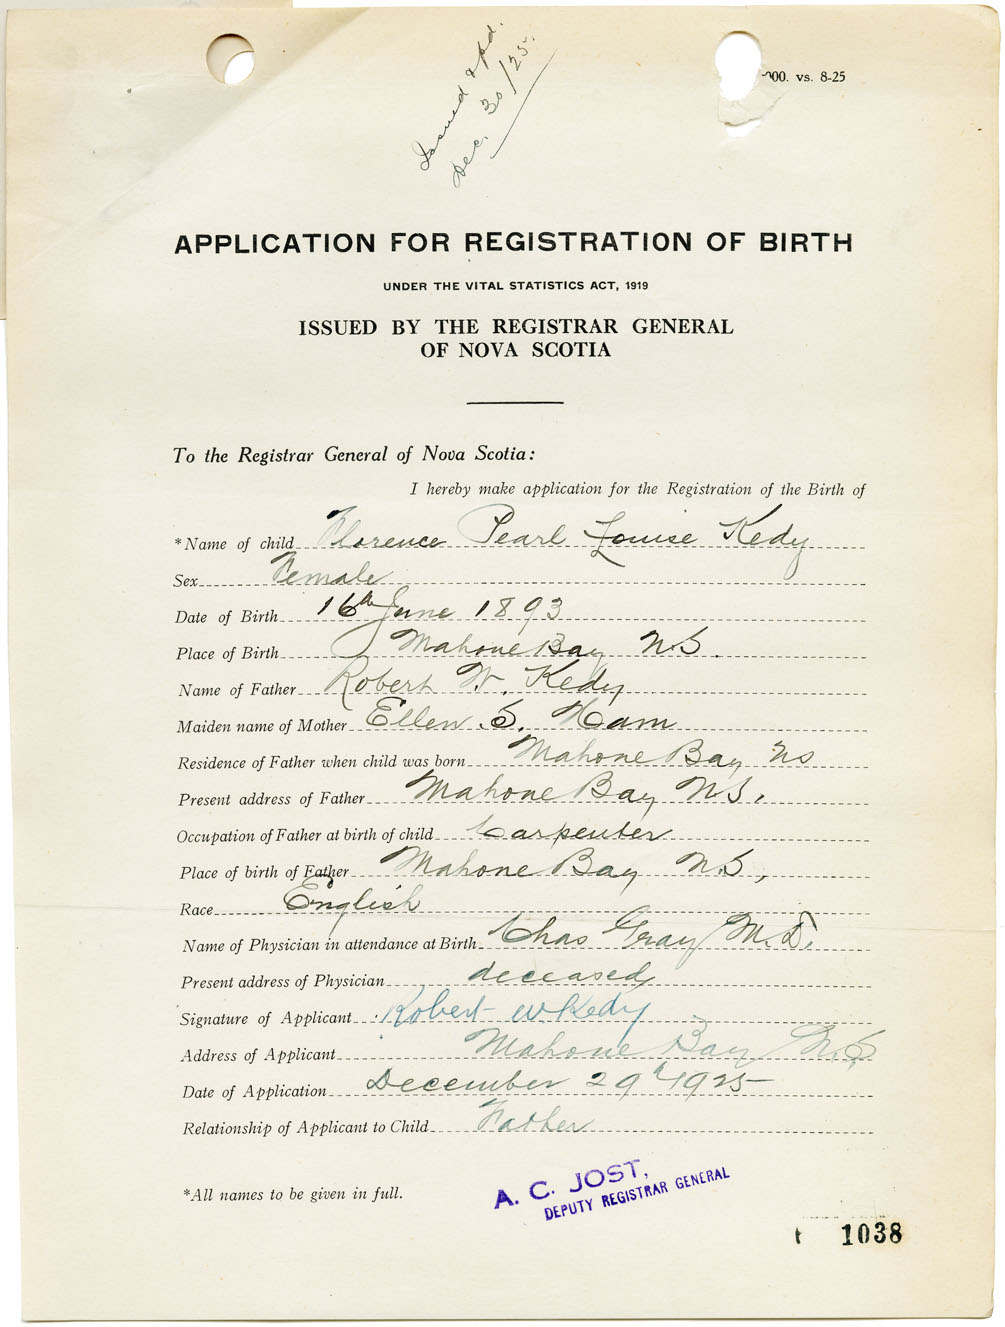 Issued & pd.
Dec. 30/25.
000. vs. 8-25
APPLICATION FOR REGISTRATION OF BIRTH
UNDER THE VITAL STATISTICS ACT, 1919
ISSUED BY THE REGISTRAR GENERAL
OF NOVA SCOTIA
To the Registrar General of Nova Scotia:
I hereby make application for the Registration of the Birth of
*Name of child Florence Pearl Louise Kedy
Sex Female
Date of Birth 16th June 1893
Place of Birth Mahone Bay N.S.
Name of Father Robert W. Kedy
Maiden name of Mother Ellen S. Ham
Residence of Father when child was born Mahone Bay NS
Present address of Father Mahone Bay N.S.
Occupation of Father at birth of child Carpenter
Place of birth of Father Mahone Bay N.S,
Race English
Name of Physician in attendance at Birth Chas Gray M.D.
Present address of Physician deceased
Signature of Applicant Robert W. Kedy
Address of Applicant Mahone Bay N.S
Date of Application December 29th 1925
Relationship of Applicant to Child Father
*All names to be given in full.
A. C. JOST,
DEPUTY REGISTRAR GENERAL
1038